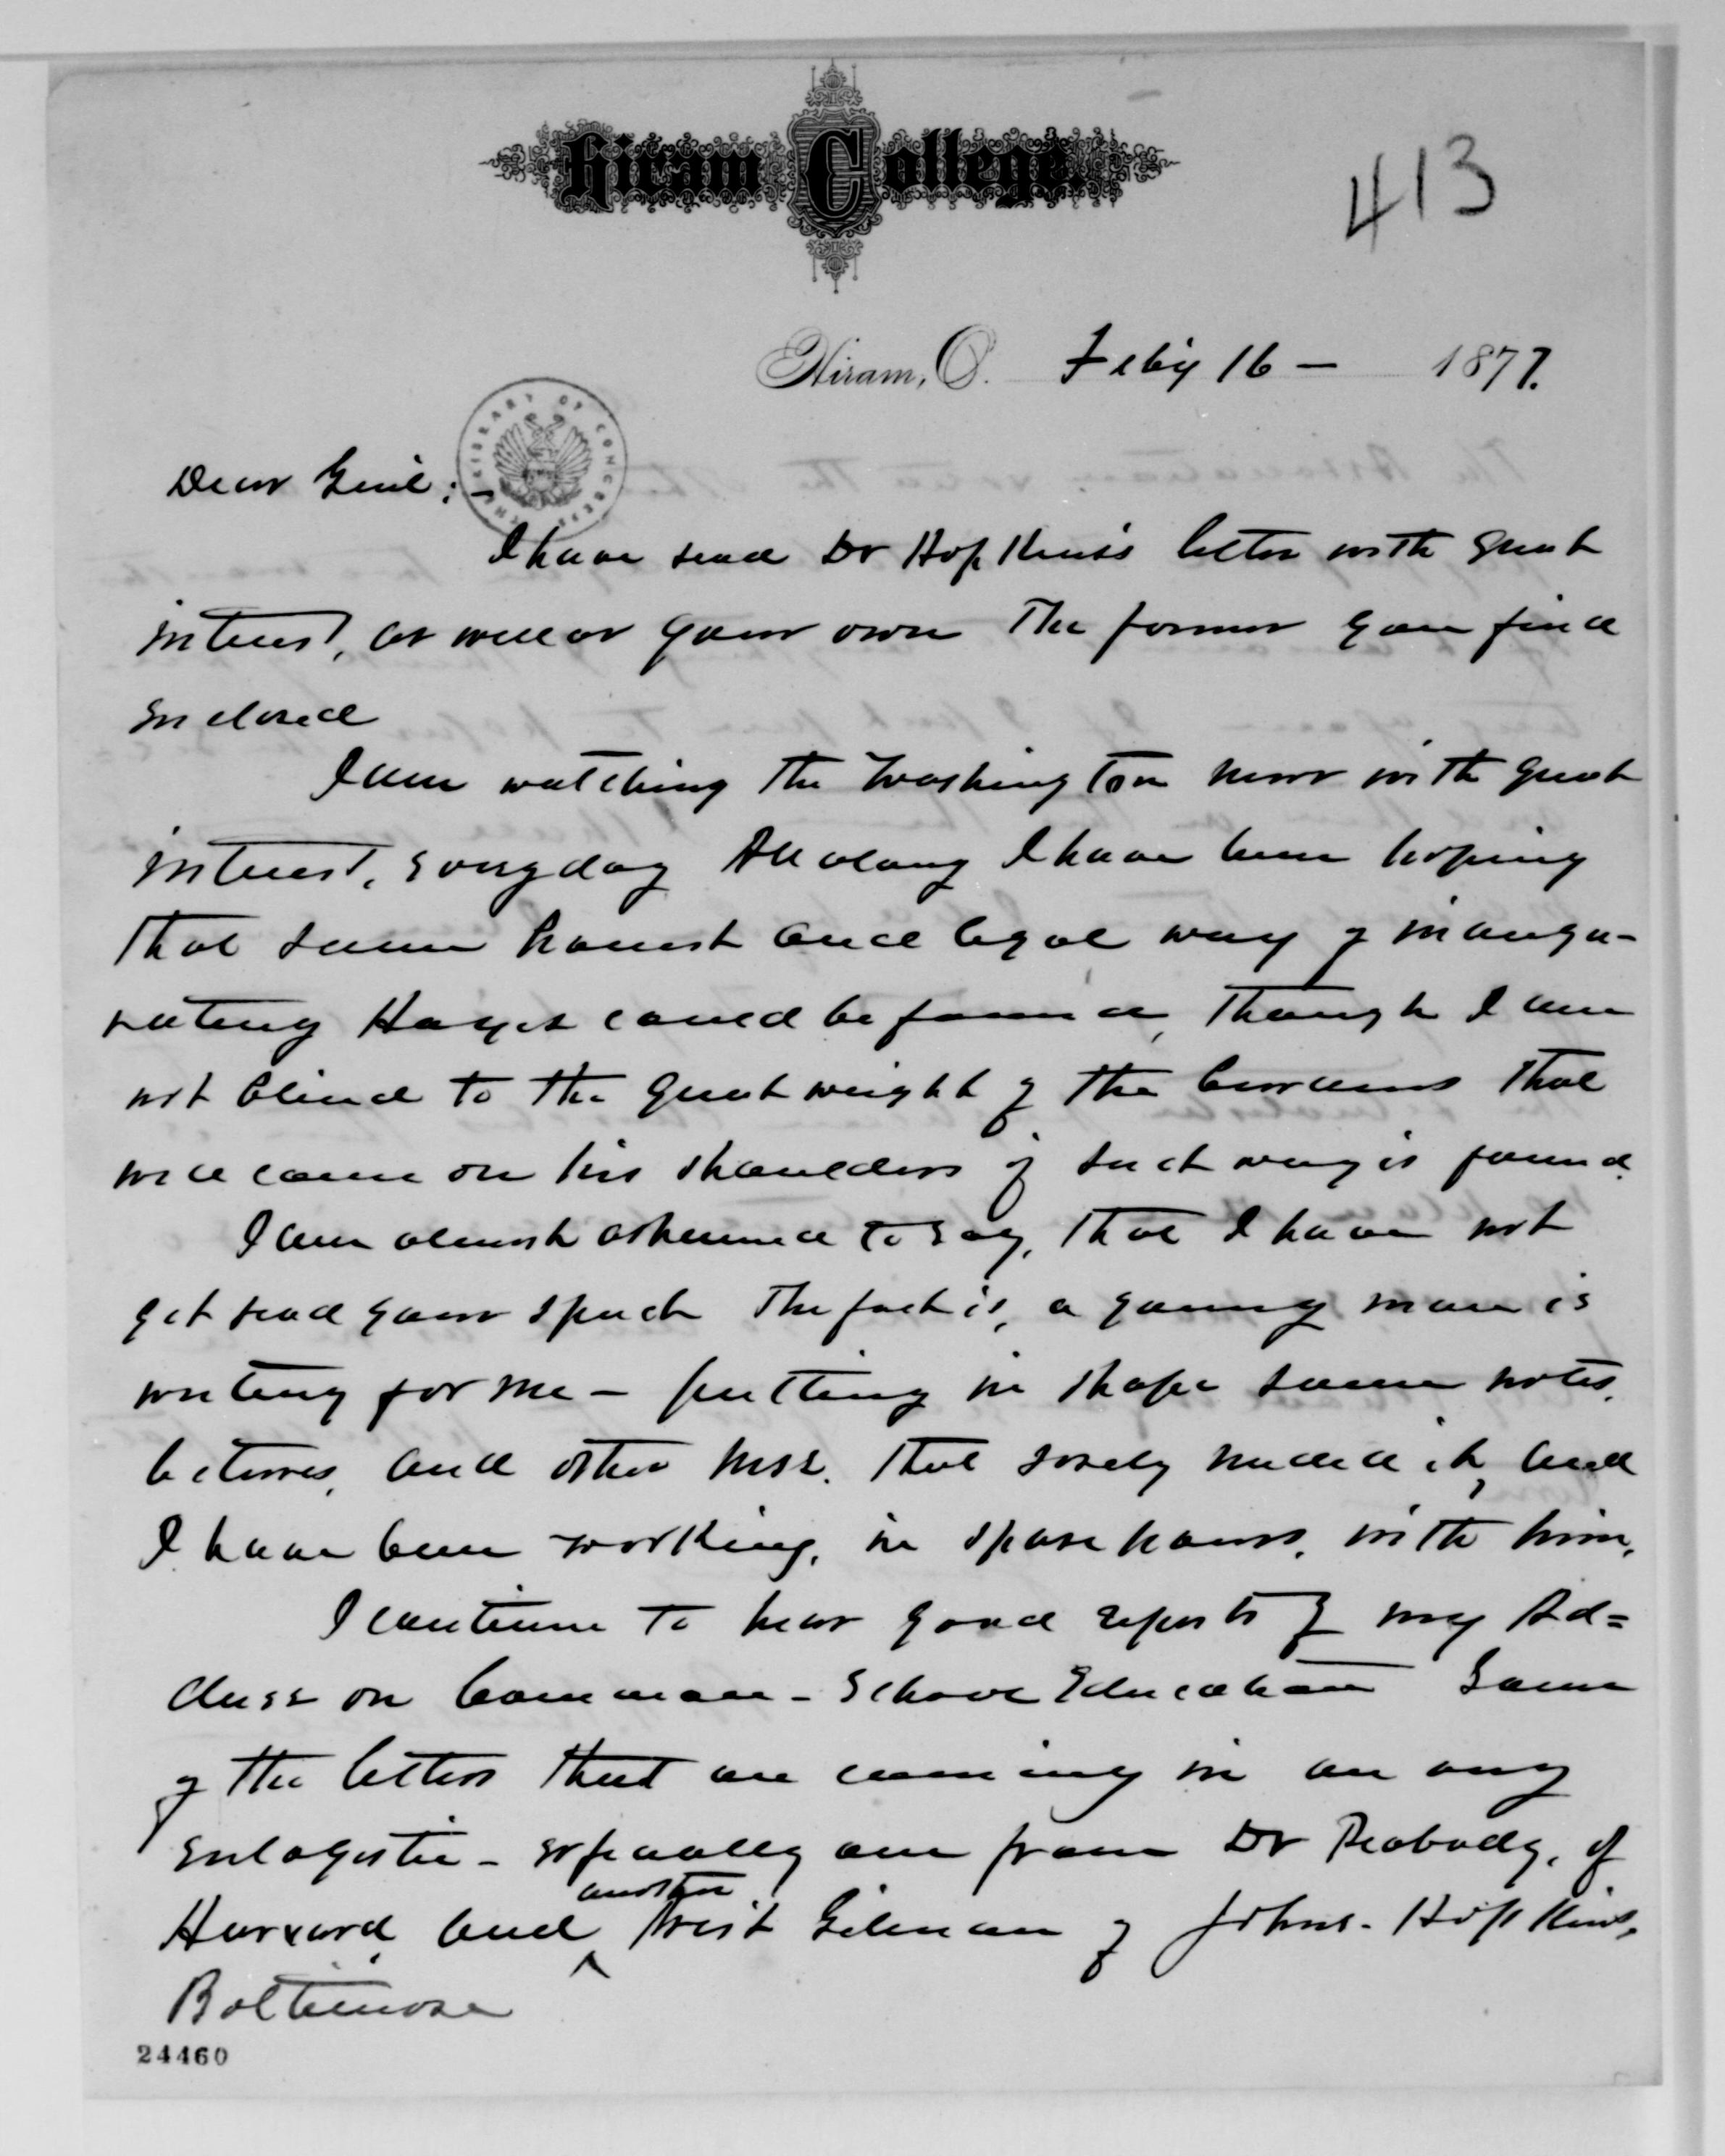 Hiram College.
413
Hiram, O. Feb'y 16 – 1877.
THE LIBRARY OF CONGRESS
Dear Gen'l:–
I have read Dr Hopkins's letter with great
interest, as well as your own The former you find
enclosed
I am watching the Washington news with great
interest, every day All along I have been hoping
that some honest and legal way of inaugu-
rating Hayes could be found, though I am
not blind to the great weight of the burdens that
will come on his shoulders if such way is found.
I am almost ashamed to say, that I have not
yet read your speech The fact is, a young man is
writing for me – putting in shape some notes,
lectures, and other mss. that sorely needed it, and
I have been working, in spare hours, with him.
I continue to hear good reports of my Ad=
dress on Common-School Education Some
of the letters that are coming in are very
eulogistic – especially one from Dr Peabody, of
Harvard, and another Prest Gilman of Johns-Hopkins,
Baltimore
24460